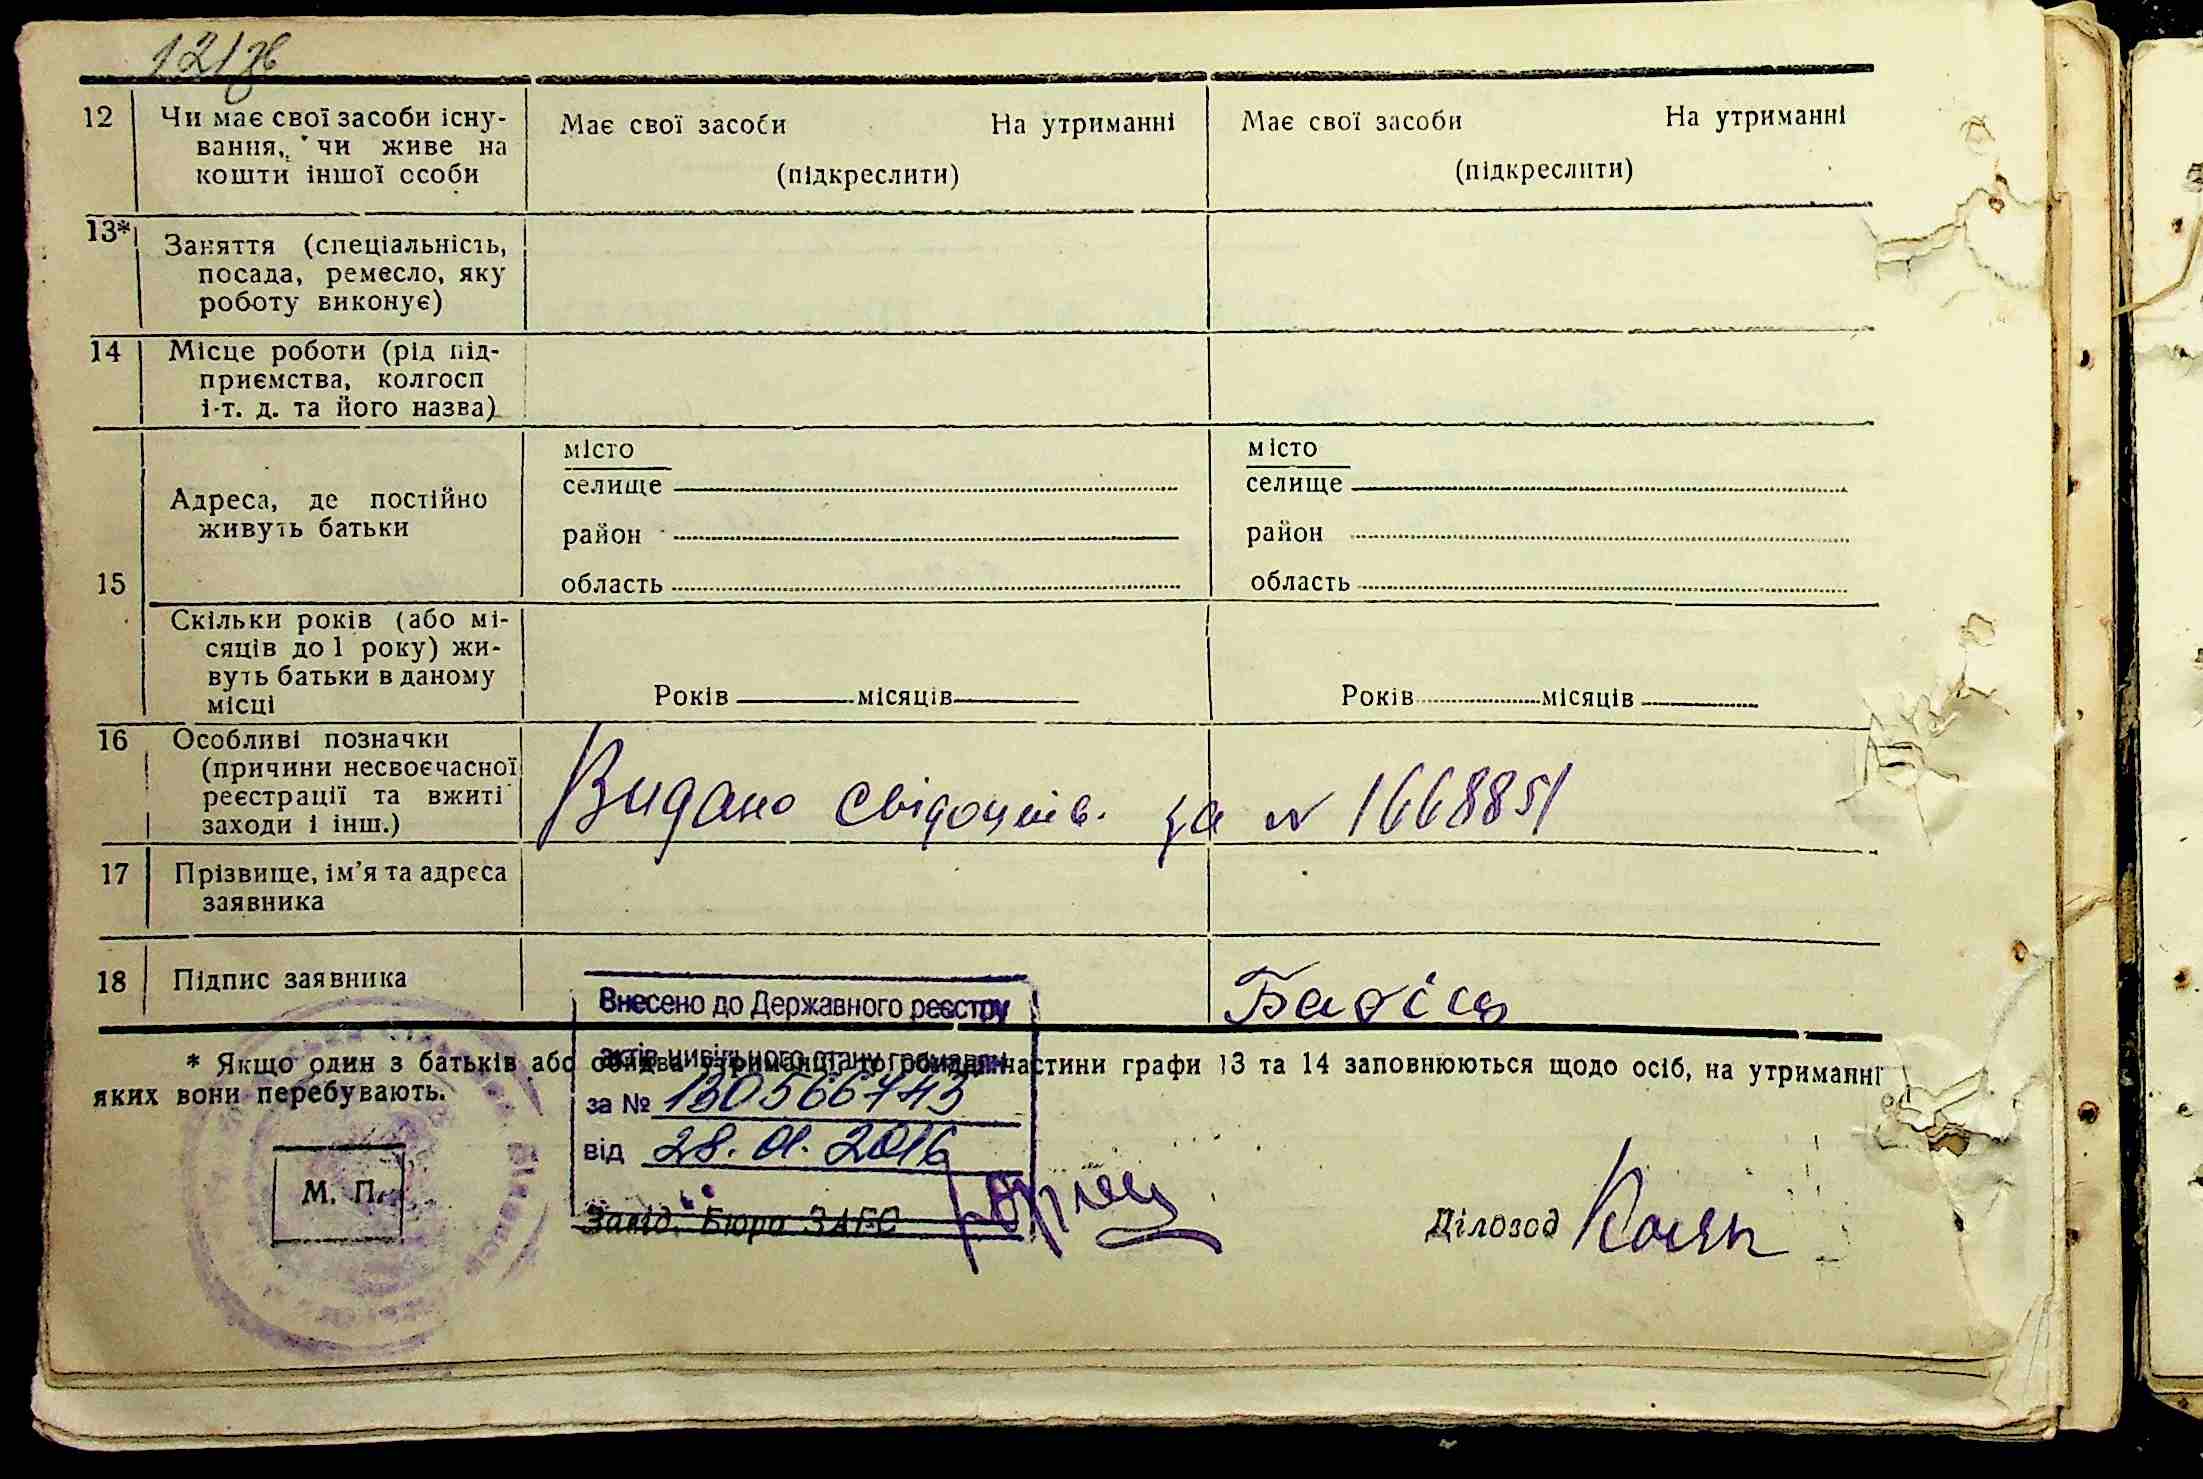 12/
12 Чи має свої засоби існу-
вання, чи живе на
кошти іншої особи
Має свої засоби На утриманні
(підкреслити)
Має свої засоби На утриманні
(підкреслити)
13* Заняття (спеціальність,
посада, ремесло, яку
роботу виконує)
14 Місце роботи (рід під-
приємства, колгосп
і т. д. та його назва)
15 Адреса, де постійно
живуть батьки
місто
селище
район
область
місто
селище
район
область
Скільки років (або мі-
сяців до 1 року) жи-
вуть батьки в даному
місці
Років місяців
Років місяців
16 Особливі позначки
(причини несвоєчасної
реєстрації та вжиті
заходи і інш.)
Видано свідоцтв. за № 1668851
17 Прізвище, ім'я та адреса
заявника
18 Підпис заявника
Внесено до Державного реєстру
актів цивільного стану громадян
за № 130566743
від 28.01.2016
* Якщо один з батьків або обидва на утриманні, то частини графи 13 та 14 заповнюються щодо осіб, на утриманні
яких вони перебувають.
М. П.
Завід. Бюро ЗАГС
Діловод